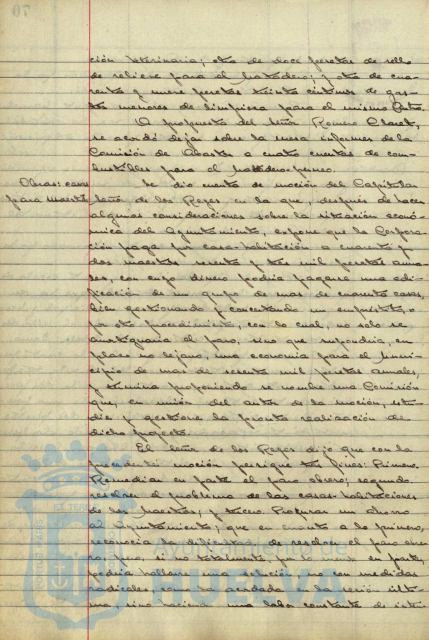 ción Veterinaria; otra de doce pesetas de sello
de relieve para el Matadero; y otra de cua-
renta y nueve pesetas treinta céntimos de gas-
tos menores de limpieza para el mismo
A propuesta del Señor Romero Claret,
se acordó dejar sobre la mesa informes de la
Comisión de Abastos a cuatro cuentas de com-
bustibles para el
Obras: casas
para maestros
Se dió cuenta de moción del Capitular
Señor de los Reyes en la que, después de hacer
algunas consideraciones sobre la situación econó-
mica del Ayuntamiento, expone que la Corpora-
ción paga por casa-habitación a cuarenta y
dos maestros sesenta y tres mil pesetas anua-
les, con cuyo dinero podría pagarse una edi-
ficación de un grupo de mas de cuarenta casas,
bien gestionando y concertando un empréstito, o
por otro procedimiento, con lo cual, no solo se
amortiguaría el paro, sino que supondría, en
plazo no lejano, una economía para el Muni-
cipio de mas de sesenta mil pesetas anuales,
y termina proponiendo se nombre una Comisión
que, en unión del autor de la moción, estu-
die y gestione la pronta realización de
dicho proyecto.
El Señor de los Reyes dijo que con la
precedente moción persigue tres fines: Primero.
Remediar en parte el paro obrero; segundo.
resolver el problema de las casas-habitaciones
de los Maestros; y tercero. Procurar un ahorro
al Ayuntamiento; que en cuanto a lo primero,
reconocía la dificultad de resolver el paro obre-
ro; pero, si no totalmente, por lo menos en parte,
podría hallarse una solución, no con medidas
radicales, como la acordada en la sesión últi-
ma, sino haciendo una labor constante de